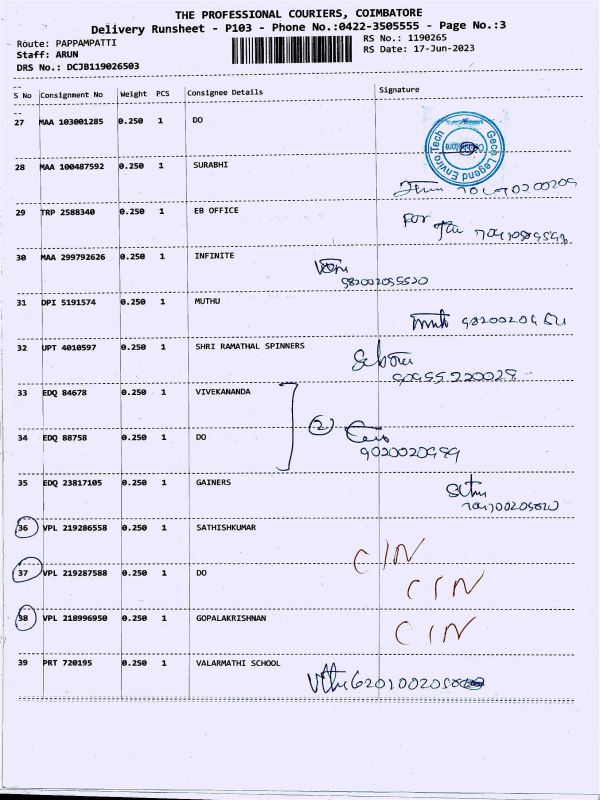 THE PROFESSIONAL COURIERS, COIMBATORE
Delivery Runsheet - P103 - Phone No.:0422-3505555 - Page No.:3
Route: PAPPAMPATTI
RS No.: 1190265
Staff: ARUN
RS Date: 17-Jun-2023
DRS No.: DCJB119026503
S No Consignment No Weight PCS Consignee Details Signature
27 MAA 103001285 0.250 1 DO
Geco Legend Enviro Tech
28 MAA 100487592 0.250 1 SURABHI
29 TRP 2588340 0.250 1 EB OFFICE
For
30 MAA 299792626 0.250 1 INFINITE
31 DPI 5191574 0.250 1 MUTHU
32 UPT 4010597 0.250 1 SHRI RAMATHAL SPINNERS
33 EDQ 84678 0.250 1 VIVEKANANDA
2
34 EDQ 88758 0.250 1 DO
35 EDQ 23817105 0.250 1 GAINERS
36 VPL 219286558 0.250 1 SATHISHKUMAR
CIN
37 VPL 219287588 0.250 1 DO
CIN
38 VPL 218996950 0.250 1 GOPALAKRISHNAN
CIN
39 PRT 720195 0.250 1 VALARMATHI SCHOOL